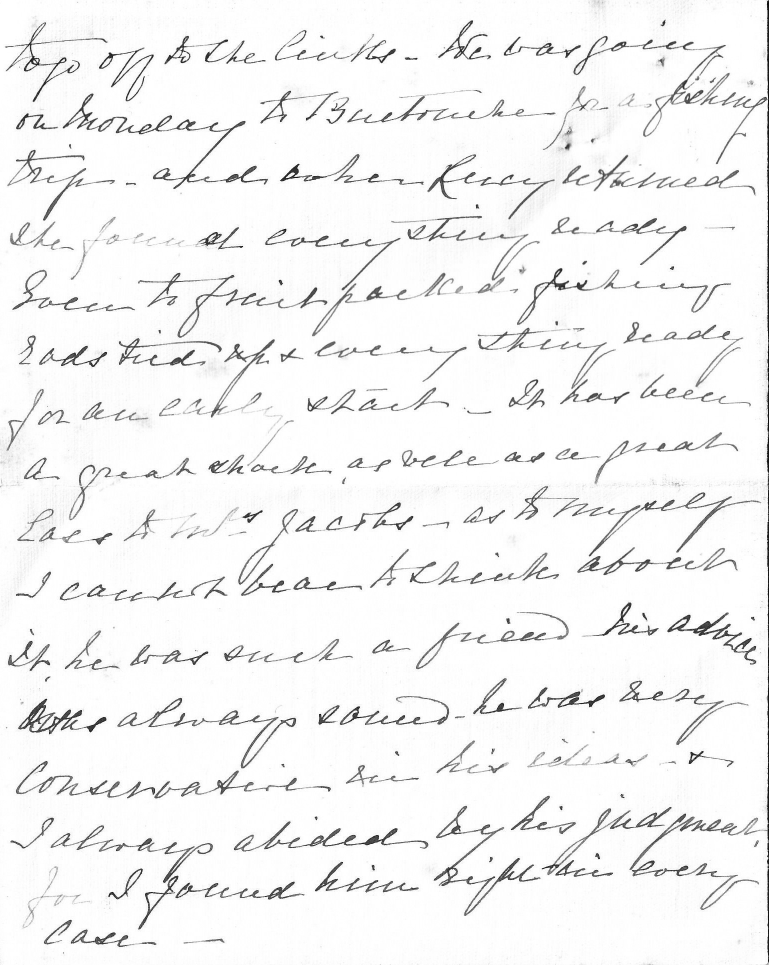 to go off to the links - He was going
on Monday to Buctouche for a fishing
trip - and when Percy returned
she found everything ready -
Even to fruit packed fishing
rods tied up & everything ready
for an early start - It has been
a great shock, as well as a great
loss to Mrs Jacobs - as to myself
I cannot bear to think about
it, he was such a friend his advice
was always sound - he was very
conservative in his ideas - &
I always abided by his judgment
for I found him right in every
case -